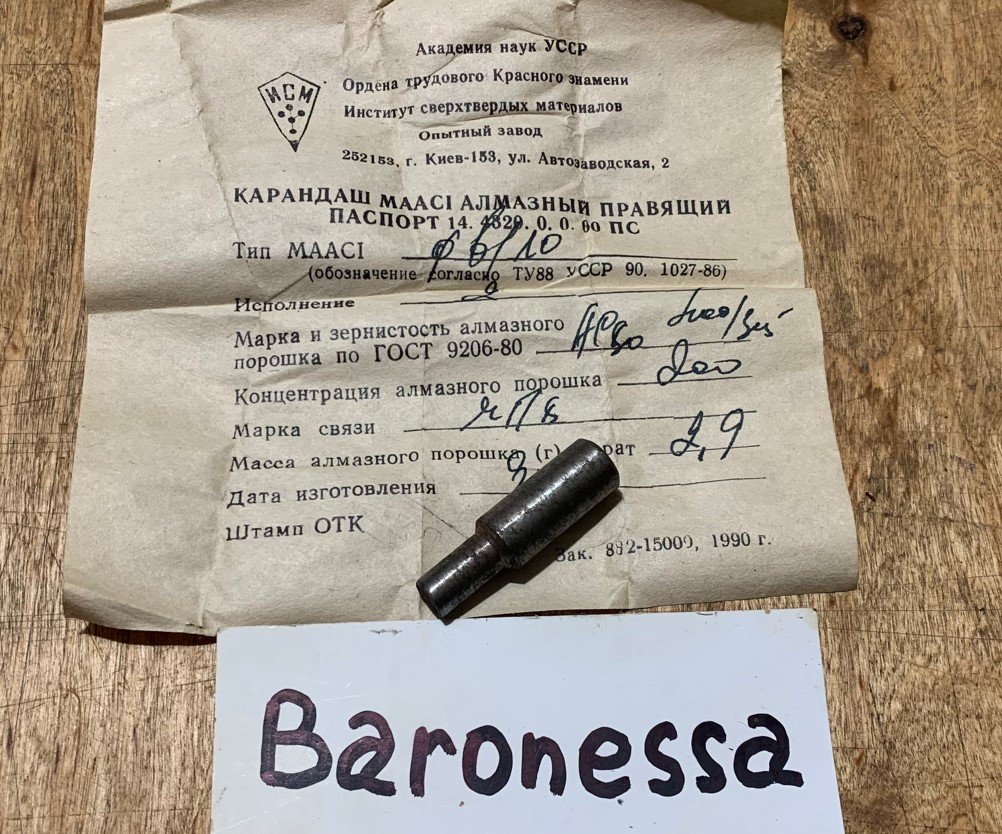 Академия наук УССР
ИСМ
Ордена трудового Красного знамени
Институт сверхтвердых материалов
Опытный завод
252153, г. Киев-153, ул. Автозаводская, 2
КАРАНДАШ МААСI АЛМАЗНЫЙ ПРАВЯЩИЙ
ПАСПОРТ 14. 4329. 0. 0. 00 ПС
Тип МААСI ф 6/10
(обозначение согласно ТУ88 УССР 90. 1027-86)
Исполнение 2
Марка и зернистость алмазного
порошка по ГОСТ 9206-80
Концентрация алмазного порошка 200
Марка связи
Масса алмазного порошка (г) 2,9
Дата изготовления
Штамп ОТК
Зак. 892-15000, 1990 г.
Baronessa